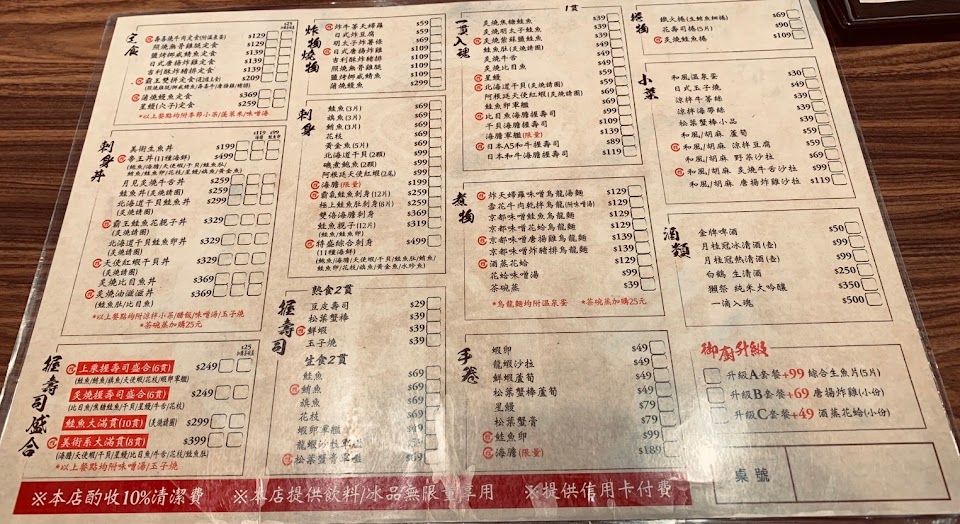 定食
$25 加購茶碗蒸
壽喜燒牛肉定食(附溫泉蛋) $129
照燒無骨雞腿定食 $129
鹽烤挪威鯖魚定食 $139
日式唐揚炸雞定食 $139
吉利酥炸豬排定食 $139
霸王雙拼定食(選擇主副) $209
(照燒雞腿/挪威鯖魚/壽喜牛/唐揚雞/豬排)
蒲燒鰻魚定食 $359
星鰻(穴子)定食 $259
*以上餐點均附季節小菜/蓬萊米/味噌湯
刺身丼
美術生魚丼 $199
帝王丼(11種海鮮) $499
(鮪魚/海膽/天使蝦/干貝/鮭魚肚/鮭魚/鮭魚卵/花枝/旗魚/黃金魚)
月見炙燒牛舌丼 $259
鮭魚丼(炙燒請圈) $259
北海道干貝鮭魚丼 $299
(炙燒請圈)
霸王鮭魚花親子丼 $329
(炙燒請圈)
北海道干貝鮭魚卵丼 $349
(炙燒請圈)
天使紅蝦干貝丼 $329
(炙燒請圈)
炙燒比目魚丼 $369
炙燒油滋滋丼 $369
(鮭魚肚/比目魚)
*以上餐點均附涼拌小菜/醋飯/味噌湯/玉子燒
*茶碗蒸加購25元
握壽司盛合
$25
上業握壽司盛合(6貫) $249
(鮭魚/鮪魚/旗魚/天使蝦/花枝/蝦卵軍艦)
炙燒握壽司盛合(6貫) $249
(比目魚/焦糖鮭魚/干貝/星鰻/牛舌/花枝)
鮭魚大滿貫(10貫)(炙燒請圈) $299
美術系大滿貫(8貫) $399
(海膽/天使蝦/干貝/星鰻/比目魚/牛舌/花枝/鮭魚肚)
*以上餐點均附味噌湯/玉子燒
炸物燒物
炸牛蒡天婦羅 $59
日式炸豆腐 $59
明太子炸薯條 $69
日式唐揚炸雞 $109
吉利酥炸豬排 $109
照燒無骨雞腿 $109
鹽烤挪威鯖魚 $109
蒲燒鰻魚 $299
刺身
鮭魚(3片) $69
旗魚(3片) $69
鮪魚(3片) $69
花枝 $69
黃金魚(5片) $99
北海道干貝(2顆) $99
磯煮鮑魚(2顆) $99
阿根廷天使紅蝦(2尾) $99
海膽(限量) $199
霸氣鮭魚刺身(12片) $259
極上鮭魚肚刺身(8片) $259
雙倍海膽刺身 $369
鮭魚親子(12片) $319
(鮭魚/鮭魚卵)
特盛綜合刺身 $499
(11種海鮮)
(鮪魚/海膽/天使蝦/干貝/鮭魚肚/鮭魚/鮭魚卵/花枝/旗魚/黃金魚/水珍魚)
握壽司
熟食2貫
豆皮壽司 $29
松葉蟹棒 $39
鮮蝦 $39
玉子燒 $39
生食2貫
鮭魚
鮪魚
旗魚
花枝
蝦卵軍艦
龍蝦沙拉軍艦
松葉蟹膏軍艦
一貫入魂
1貫
炙燒焦糖鮭魚 $39
炙燒明太子鮭魚 $39
炙燒紫蘇鹽鮭魚 $39
鮭魚肚(炙燒請圈) $49
炙燒牛舌 $49
炙燒比目魚
星鰻
北海道干貝(炙燒請圈) $59
阿根廷天使紅蝦(炙燒請圈) $59
鮭魚卵軍艦 $69
比目魚海膽握壽司 $109
干貝海膽握壽司 $109
海膽軍艦(限量) $139
日本A5和牛握壽司 $89
日本和牛海膽握壽司 $119
煮物
炸天婦羅味噌烏龍湯麵 $129
雪花牛肉乾拌烏龍(附味噌湯) $129
京都味噌鮭魚烏龍麵 $129
京都味噌花蛤烏龍麵 $139
京都味噌唐揚雞烏龍麵 $139
京都味噌炸豬排烏龍麵 $139
酒蒸花蛤 $99
花蛤味噌湯 $99
茶碗蒸 $39
*烏龍麵均附溫泉蛋 *茶碗蒸加購25元
手卷
蝦卵 $49
龍蝦沙拉 $49
鮮蝦蘆筍 $49
松葉蟹棒蘆筍 $49
星鰻 $79
松葉蟹膏 $79
鮭魚卵 $99
海膽(限量) $189
捲物
鐵火捲(生鮪魚細捲) $69
花壽司捲(5片) $90
炙燒鮭魚捲 $109
小菜
和風溫泉蛋 $30
日式玉子燒 $49
涼拌牛蒡絲
涼拌海帶絲
松葉蟹棒小品
和風/胡麻 蘆筍 $59
和風/胡麻 涼拌豆腐 $59
和風/胡麻 野菜沙拉
和風/胡麻 炙燒牛舌沙拉
和風/胡麻 唐揚炸雞沙拉 $119
酒類
金牌啤酒 $50
月桂冠冰清酒(壺) $99
月桂冠熱清酒(壺) $99
白鶴 生清酒 $250
獺祭 純米大吟釀 $350
一滴入魂 $500
御廚升級
升級A套餐+99 綜合生魚片(5片)
升級B套餐+69 唐揚炸雞(小份)
升級C套餐+49 酒蒸花蛤(小份)
桌號
※本店酌收10%清潔費 ※本店提供飲料/冰品無限量享用 ※提供信用卡付費